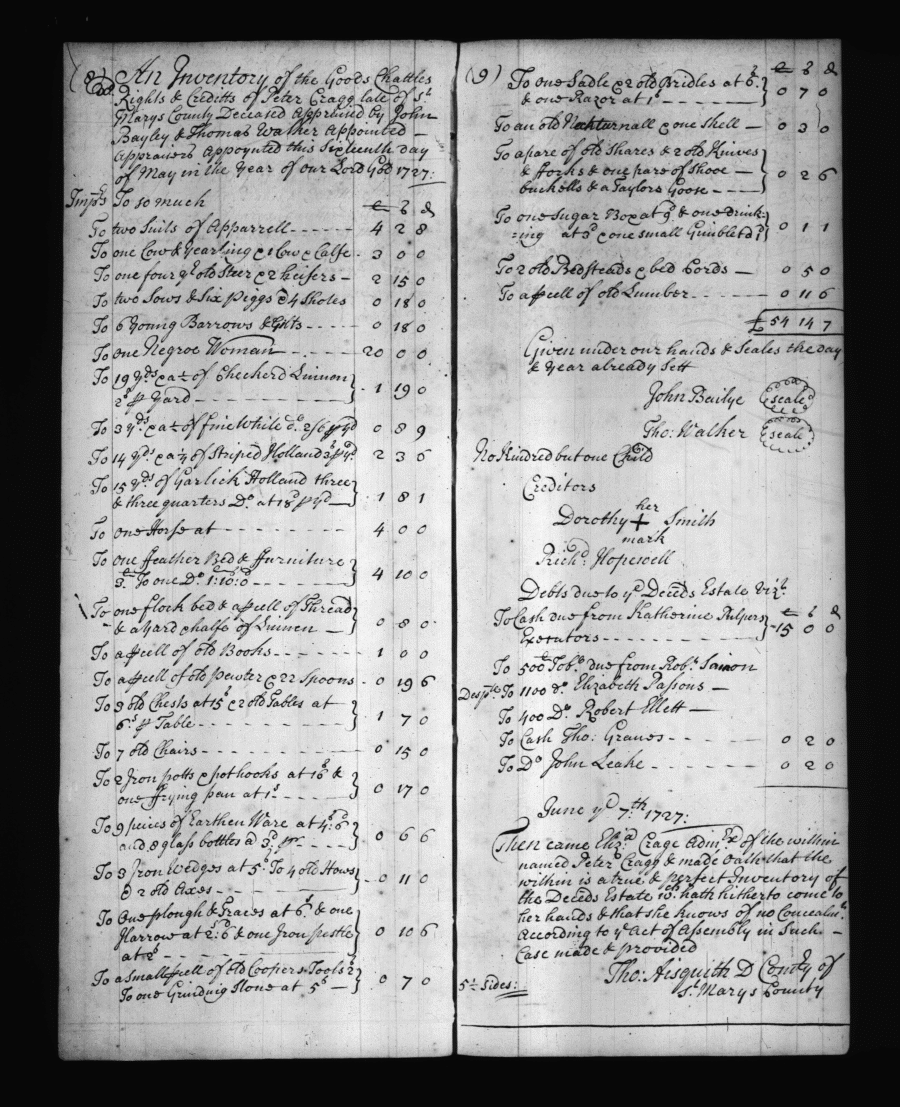 (8) An Inventory of the Goods Chattles
Rights & Creditts of Peter Cragg late of St
Marys County Deceased Appraised by John
Bayley & Thomas Walker Appointed –
Appraisers Appoynted this Sixteenth day
of May in the Year of our Lord God 1727:
Imprs To so much £ s d
To two Suits of Apparrell - - - - - 4 2 8
To one Cow & Yearling & 1 Cow & Calfe - 3 0 0
To one four yr old Steer & 2 heifers - 2 15 0
To two Sows & Six Piggs & 4 Sholes 0 18 0
To 6 Young Barrows & Gilts - - - - 0 18 0
To one Negroe Woman - - - - 20 0 0
To 19 yds of Checkerd Linnon
2s p Yard - - - - - 1 19 0
To 3 yds of fine White Do 2/6 p yd 0 8 9
To 14 yds of Striped Holland 3s p yd 2 3 6
To 15 yds of Garlick Holland three
& three quarters Do at 18d p yd - 1 8 1
To one Horse at - - - - 4 0 0
To one ffeather Bed & ffurniture
3£ To one Do 1:10:0 - - - - 4 10 0
To one flock bed & apcell of Thread
& a yard & halfe of Linnen - 0 8 0
To apcell of old Books - - - 1 0 0
To apcell of old pewter & 22 Spoons - 0 19 6
To 3 old Chests at 15s & 2 old Tables at
6s p Table - - - - 1 7 0
To 7 old Chairs - - - - 0 15 0
To 2 Iron potts & pothooks at 16s &
one ffrying pan at 1s - - - - 0 17 0
To 9 peices of Earthen Ware at 4s:6d
and 8 glass bottles a 3d pr - - - 0 6 6
To 3 Iron Wedges at 5s To 4 old Howes
& 2 old Axes - - - - 0 11 0
To One plough & Traces at 6s & one
Harrow at 2s:6 & one Iron pestle
at 2s - - - - 0 10 6
To a Small pcell of Old Coopers Tools 2
To one Grinding Stone at 5s - 0 7 0
(9) £ s d
To one Sadle & 2 old Bridles at 6s
& one Razor at 1s - - - - 0 7 0
To an old & one Shell - 0 3 0
To apare of old Shares & 2 old Knives
& fforks & one pare of Shooe -
buckells & a Taylors Goose - - - 0 2 6
To one Sugar Box at 9d & one drink-
:ing at 3d & one small Gimblet 1d 0 1 1
To 2 old Bedsteads & bed Cords - 0 5 0
To apcell of old Lumber - - - - 0 11 6
£ 54 14 7
Given under our hands & Seales the day
& Year already Sett
John Bailye seale
Tho: Walker seale
No Kindred but one Child
Creditors
her
Dorothy + Smith
mark
Richd Hopewell
Debts due to ye Deceds Estate Vizt
To Cash due from Katherine Pulpers £ s d
Executors - - - - 15 0 0
To 500 Tobo due from Robt
Despte To 1100 do Elizabeth Passons -
To 400 Do Robert Ellett -
To Cash Tho: Graves - - - - 0 2 0
To Do John Leake - - - - 0 2 0
June ye 7th: 1727:
Then came Elizа Crage Admx of the within
named Peter Cragg & made Oath that the
within is a true & perfect Inventory of
the Deceds Estate wch hath hitherto come to
her hands & that she knows of no Concealmt
According to ye Act of Assembly in Such -
Case made & provided
Tho: Aisquith D Comry of
St Marys County
5½ Sides: